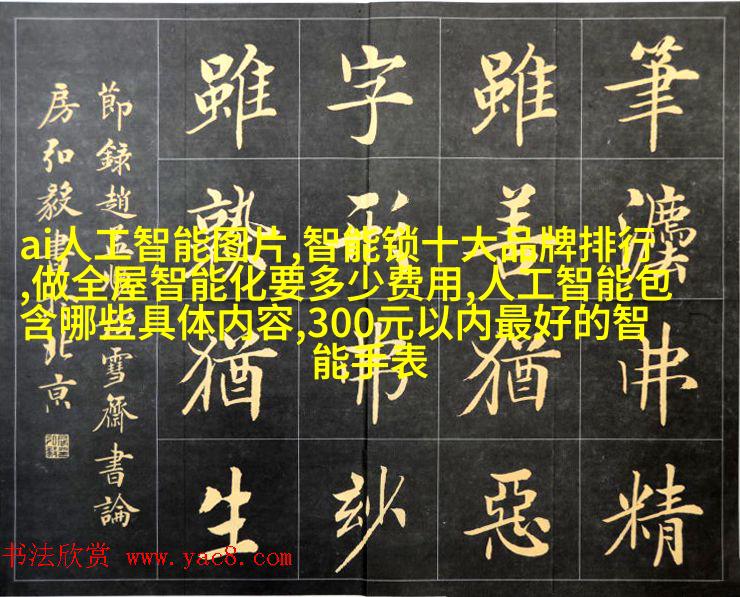 筆灋弗精
雖善猶惡
字形弗玅
雖熟猶生
節錄趙孟頫松雪齋書論
房弘毅書於北京
ai人工智能图片,智能锁十大品牌排行
,做全屋智能化要多少费用,人工智能包
含哪些具体内容,300元以内最好的智
能手表
书法欣赏 www.yac8.com